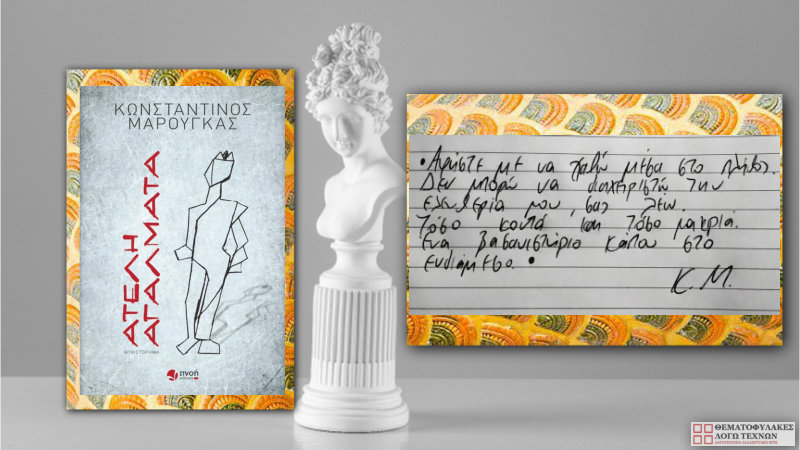 ΚΩΝΣΤΑΝΤΙΝΟΣ
ΜΑΡΟΥΓΚΑΣ
ΑΤΕΛΗ
ΑΓΑΛΜΑΤΑ
ΜΥΘΙΣΤΟΡΗΜΑ
πνοή
• Αφήστε με να χαθώ μέσα στο πλήθος.
Δεν μπορώ να διαχειριστώ την
ελευθερία μου, σας λέω.
Τόσο κοντά και τόσο μακριά.
Ένα βασανιστήριο κάπου στο
ενδιάμεσο. •
Κ. Μ.
ΘΕΜΑΤΟΦΥΛΑΚΕΣ
ΛΟΓΩ ΤΕΧΝΩΝ